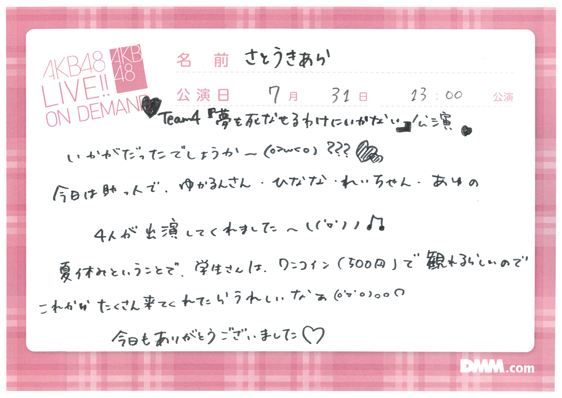 AKB48
LIVE!!
ON DEMAND
AKB
48
名 前 さとうきあら
公演日 7月 31日 13:00 公演
Team4『夢を死なせるわけにいかない』公演
いかがだったでしょうか〜(o>ω<o)???
今日は助っ人で、ゆかるんさん・ひなな・れいちゃん・あゆの
4人が出演してくれました〜\(^o^)/♫
夏休みということで、学生さんは、ワンコイン(500円)で観れるらしいので
これからたくさん来てくれたらうれしいなぁ(o'▽'o)oo♡
今日もありがとうございました♡
DMM.com